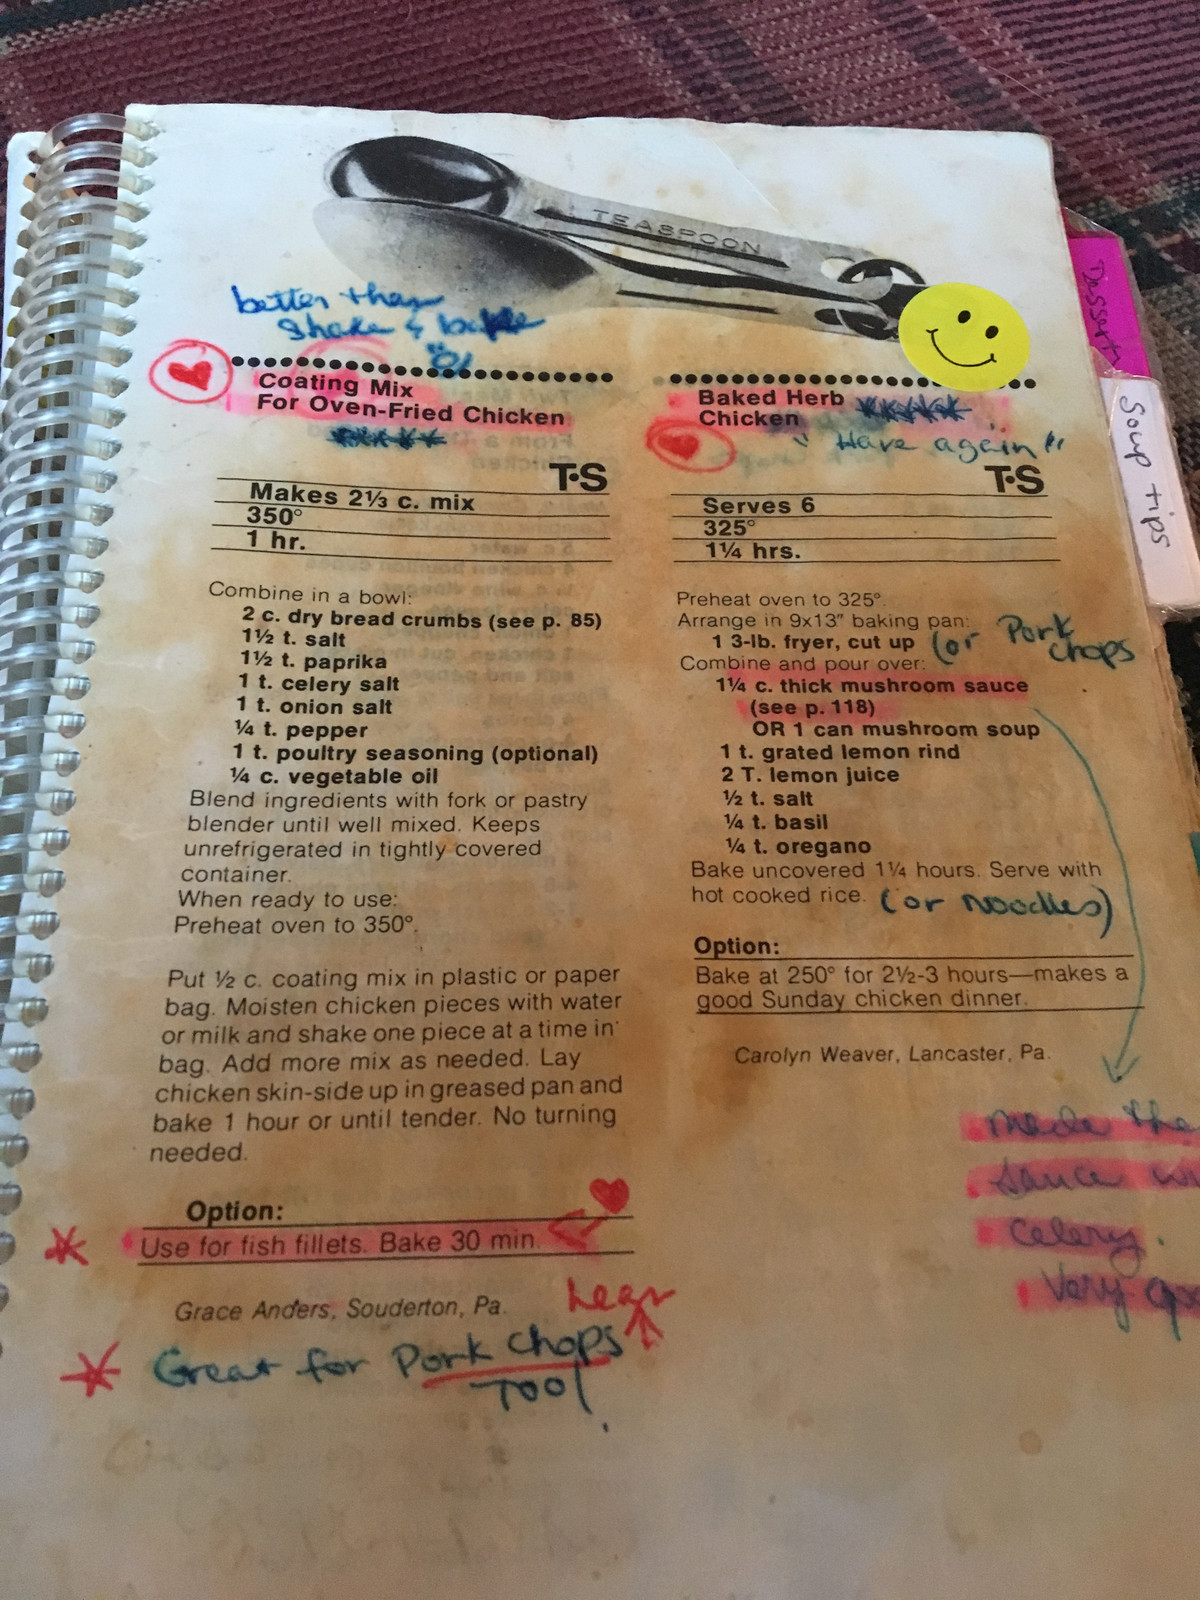 TEASPOON
better than
Shake & bake
Coating Mix
For Oven-Fried Chicken
T•S
Makes 2⅓ c. mix
350°
1 hr.
Combine in a bowl:
2 c. dry bread crumbs (see p. 85)
1½ t. salt
1½ t. paprika
1 t. celery salt
1 t. onion salt
¼ t. pepper
1 t. poultry seasoning (optional)
¼ c. vegetable oil
Blend ingredients with fork or pastry
blender until well mixed. Keeps
unrefrigerated in tightly covered
container.
When ready to use:
Preheat oven to 350°.
Put ½ c. coating mix in plastic or paper
bag. Moisten chicken pieces with water
or milk and shake one piece at a time in
bag. Add more mix as needed. Lay
chicken skin-side up in greased pan and
bake 1 hour or until tender. No turning
needed.
Option:
Use for fish fillets. Bake 30 min.
Grace Anders, Souderton, Pa.
Lean
Great for Pork Chops
Too!
Baked Herb
Chicken
"Have again"
T•S
Serves 6
325°
1¼ hrs.
Preheat oven to 325°.
Arrange in 9x13" baking pan:
1 3-lb. fryer, cut up (or Pork
chops
Combine and pour over:
1¼ c. thick mushroom sauce
(see p. 118)
OR 1 can mushroom soup
1 t. grated lemon rind
2 T. lemon juice
½ t. salt
¼ t. basil
¼ t. oregano
Bake uncovered 1¼ hours. Serve with
hot cooked rice. (or Noodles)
Option:
Bake at 250° for 2½-3 hours—makes a
good Sunday chicken dinner.
Carolyn Weaver, Lancaster, Pa.
made the
sauce
Celery.
Very
Desserts
Soup tips